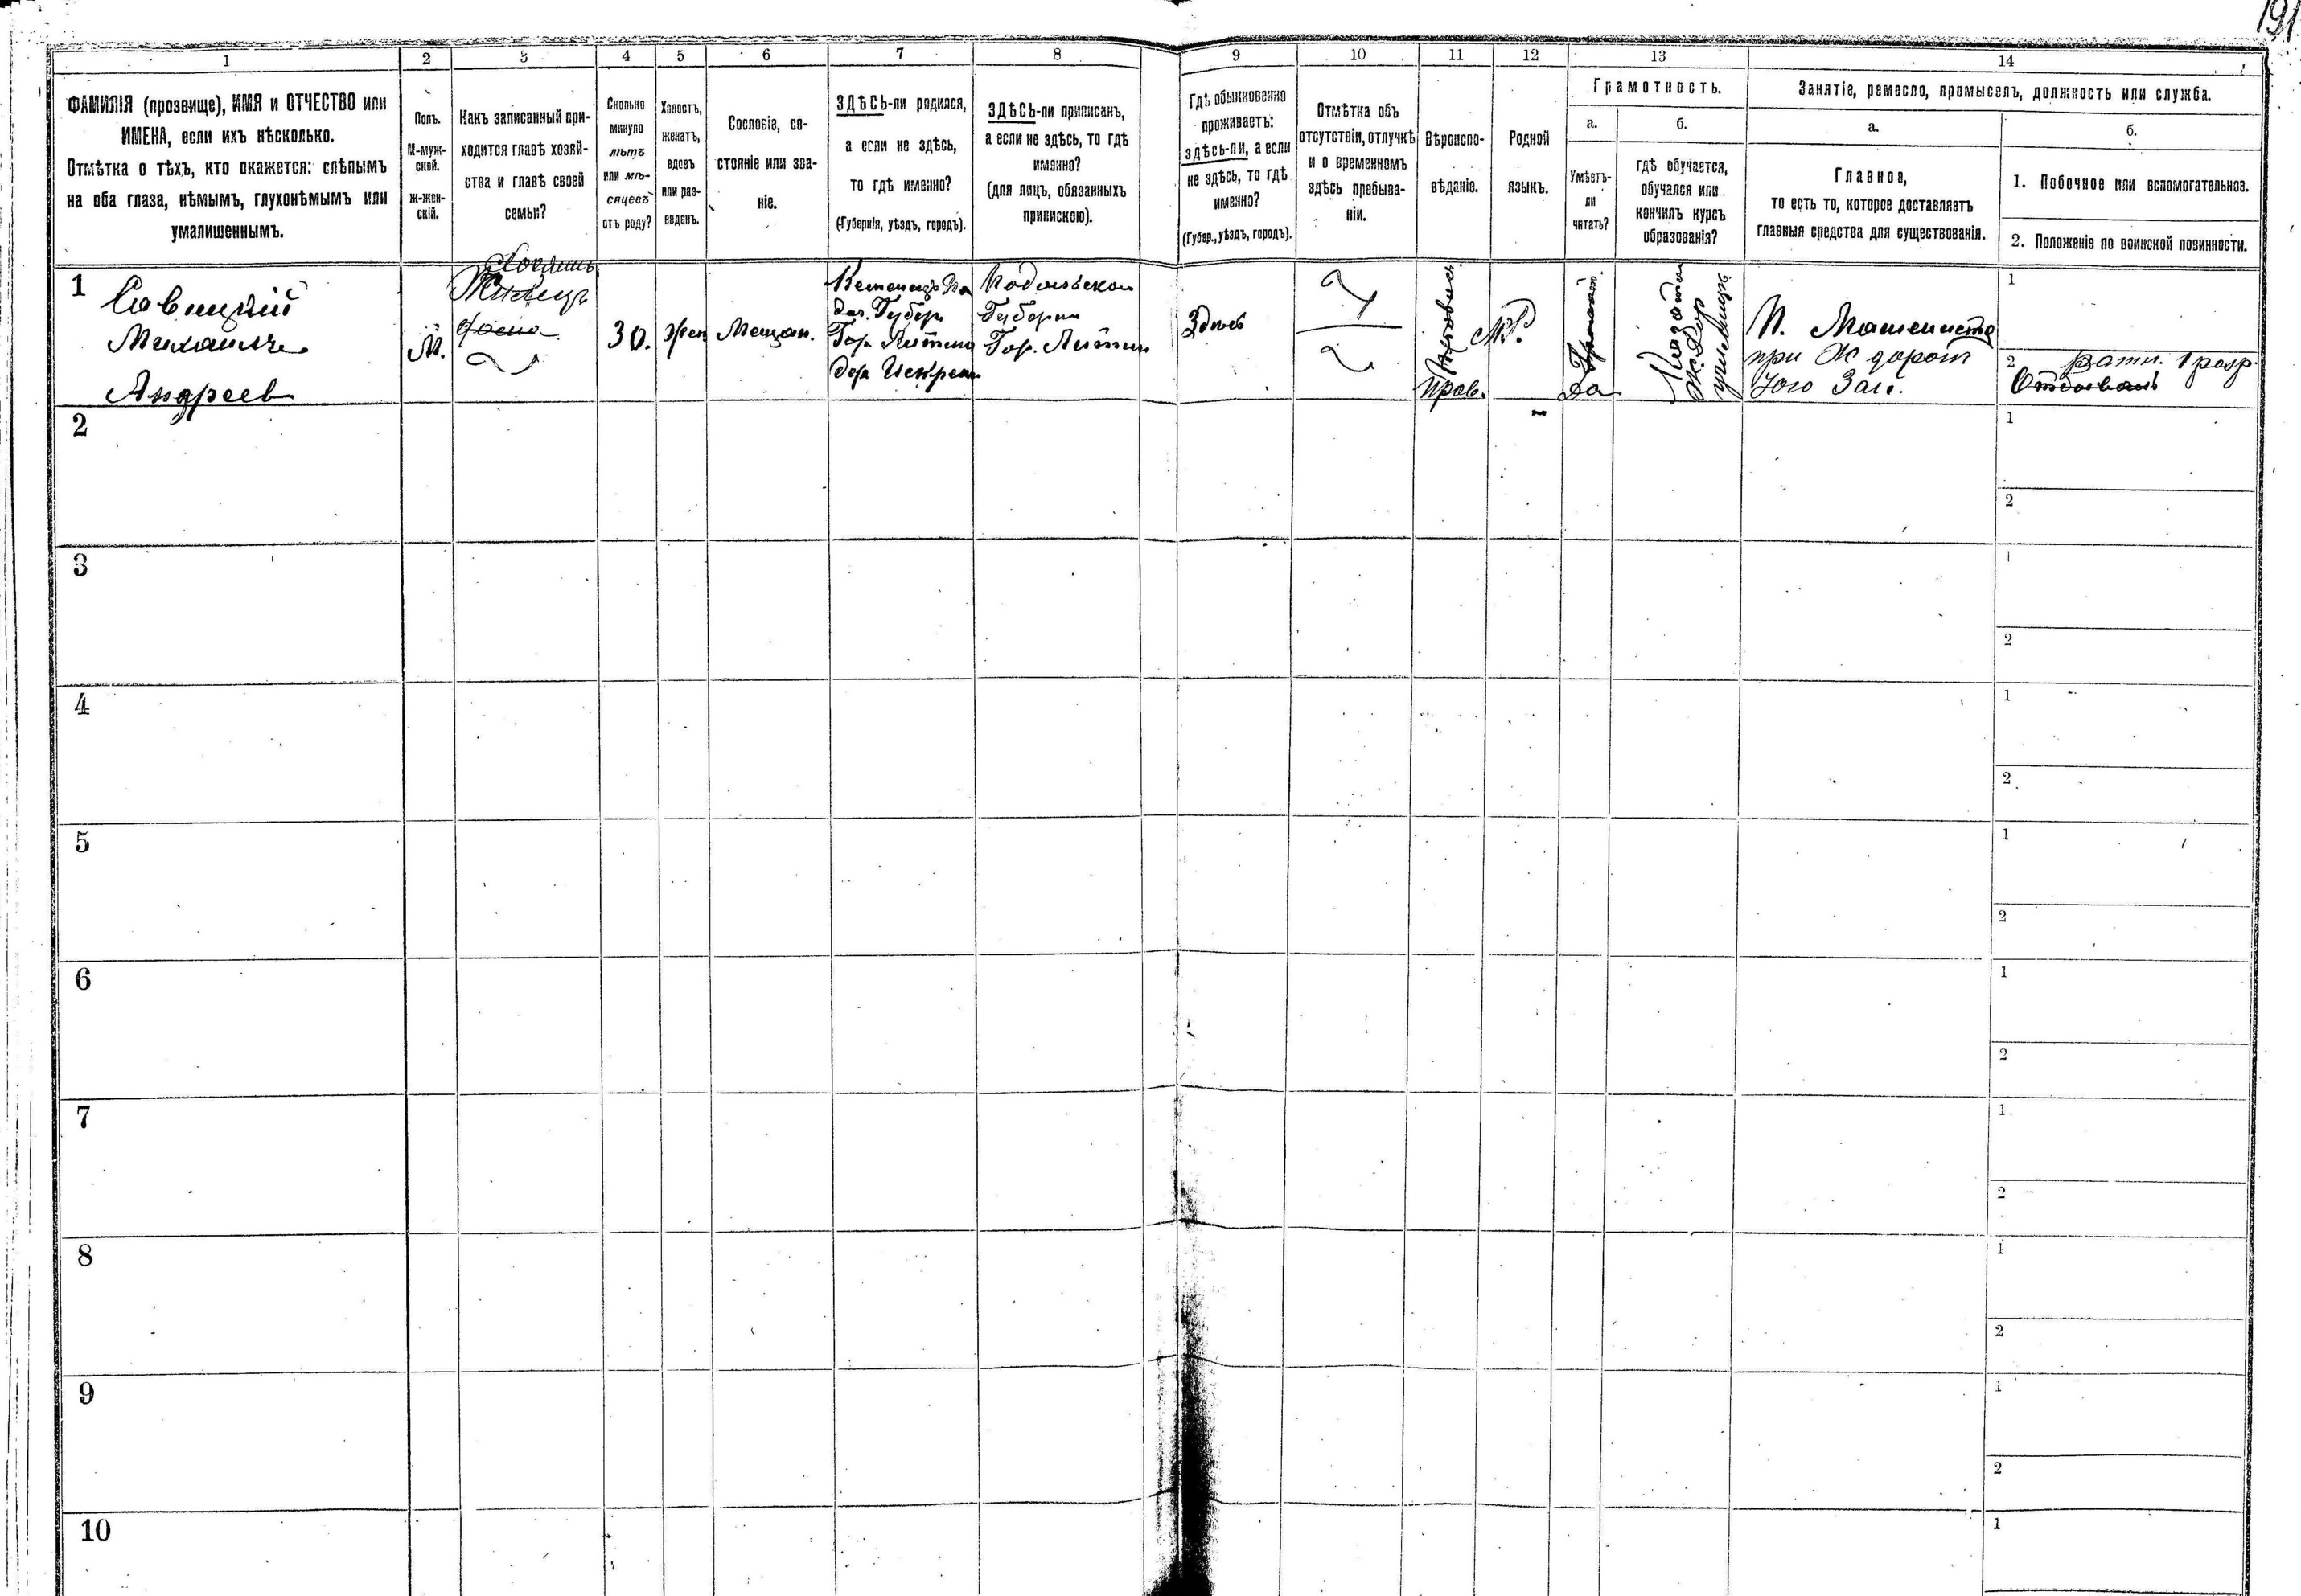 191
1
2
3
4
5
6
7
8
9
10
11
12
13
14
ФАМИЛІЯ (прозвище), ИМЯ и ОТЧЕСТВО или
ИМЕНА, если ихъ нѣсколько.
Отмѣтка о тѣхъ, кто окажется: слѣпымъ
на оба глаза, нѣмымъ, глухонѣмымъ или
умалишеннымъ.
Полъ.
М-муж-
ской.
ж-жен-
скій.
Какъ записанный при-
ходится главѣ хозяй-
ства и главѣ своей
семьи?
Сколько
минуло
лѣтъ
или мѣ-
сяцевъ
отъ роду?
Холостъ,
женатъ,
вдовъ
или раз-
веденъ.
Сословіе, со-
стояніе или зва-
ніе.
ЗДѢСЬ-ли родился,
а если не здѣсь,
то гдѣ именно?
(Губернія, уѣздъ, городъ).
ЗДѢСЬ-ли приписанъ,
а если не здѣсь, то гдѣ
именно?
(для лицъ, обязанныхъ
припискою).
Гдѣ обыкновенно
проживаетъ:
здѣсь-ли, а если
не здѣсь, то гдѣ
именно?
(Губер., уѣздъ, городъ).
Отмѣтка объ
отсутствіи, отлучкѣ
и о временномъ
здѣсь пребыва-
ніи.
Вѣроиспо-
вѣданіе.
Родной
языкъ.
Грамотность.
а.
Умѣетъ-
ли
читать?
б.
гдѣ обучается,
обучался или
кончилъ курсъ
образованія?
Занятіе, ремесло, промыселъ, должность или служба.
а.
Главное,
то есть то, которое доставляетъ
главныя средства для существованія.
б.
1. Побочное или вспомогательное.
2. Положеніе по воинской повинности.
1
Савицкій
Михаилъ
Андреев
М.
Хозяинъ
30.
Жен
Мещан.
Губер
Гор. Литин
дер
Подольской
Губерни
Гор. Литин
Здесь
Прав.
М.Р.
Да
Жс. Дор
училище
П. Машениста
при Ж дорот
Юго Зап.
1
2 ратн. 1 разр
2
1
2
3
1
2
4
1
2
5
1
2
6
1
2
7
1
2
8
1
2
9
1
2
10
1